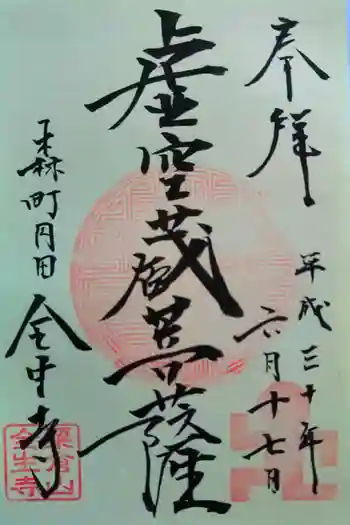 奉拝
平成三十年
六月十七日
虚空蔵菩薩
森町円田
全生寺
粟倉山
全生寺